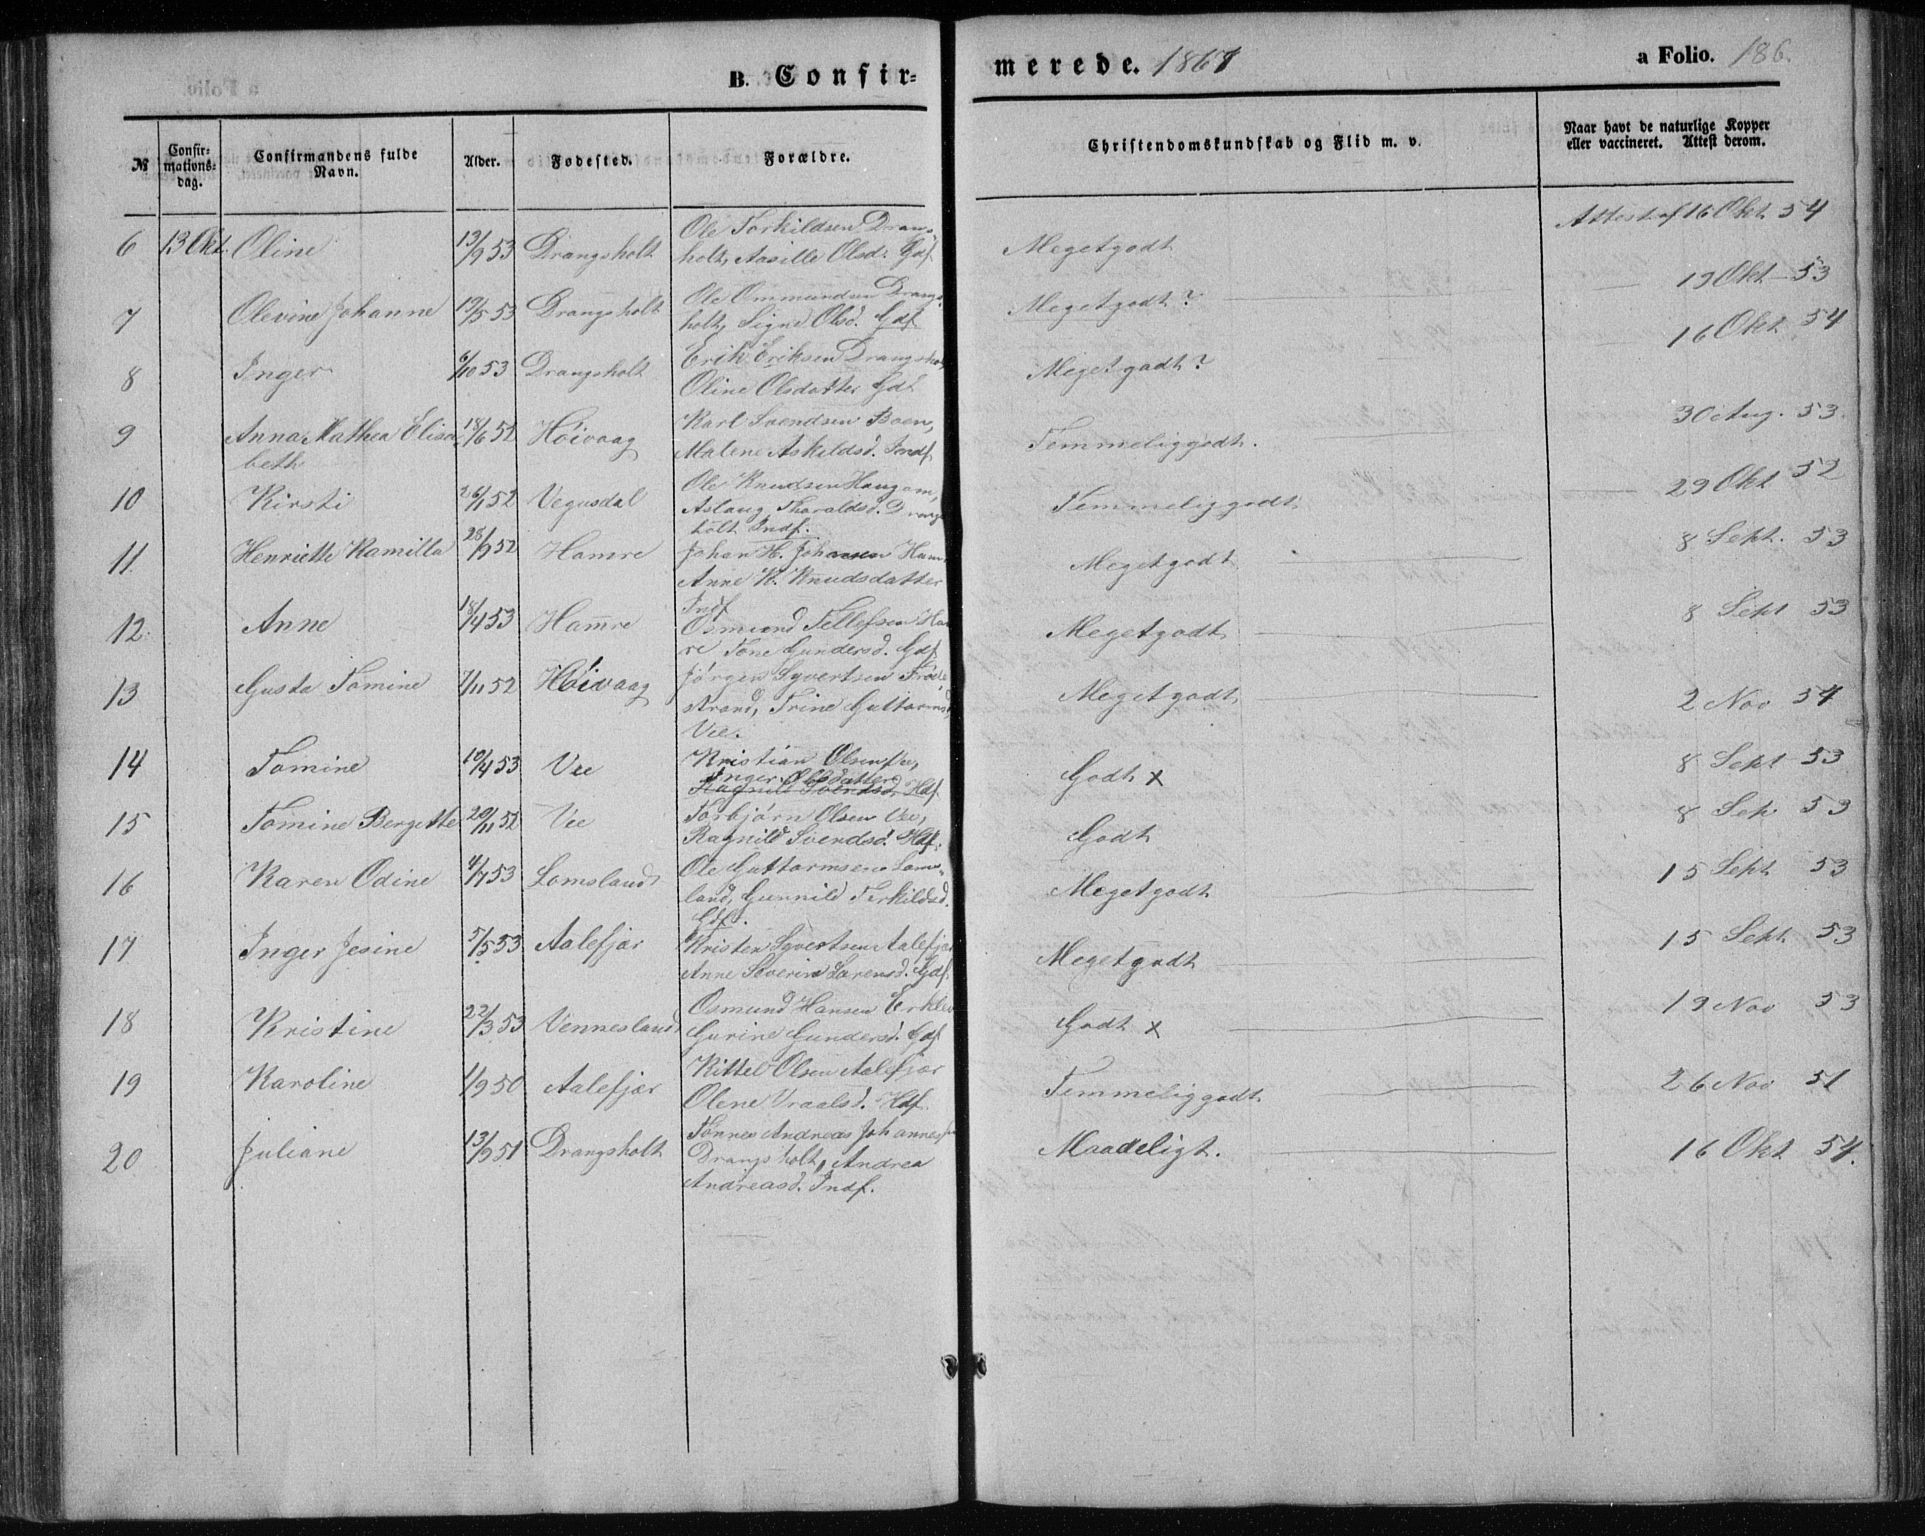 B. Confir=
merede. 1867
a Folio. 186.
№
Confir=
mations=
dag.
Confirmandens fulde
Navn.
Alder.
Fødested.
Forældre.
Christendomskundskab og Flid m. v.
Naar havt de naturlige Kopper
eller vaccineret. Attest derom.
6 13 Okt. Oline 13/9 53 Drangsholt Ole Torkildsen Drangs=
holt, Aasille Olsd. Gdf. Megetgodt Attest af 16 Okt. 54
7 Olevine Johanne 19/5 53 Drangsholt Ole Ommundsen Drangs=
holt, Signe Olsd. Gdf. Megetgodt? 19 Okt 53
8 Inger 6/10 53 Drangsholt Erik Eriksen Drangsholt,
Oline Olsdatter Gdf. Megetgodt? 16 Okt. 54
9 Anna Mathea Elisa=
beth 18/6 52 Höivaag Karl Svendsen Boen,
Malene Askildsd. Indf. Temmeliggodt. 30 Aug. 53
10 Kirsti 26/1 52 Vegusdal Ole Knudsen Haugom,
Aslaug Tharaldsd. Drangs
holt Indf. Temmeliggodt 29 Okt 52
11 Henriette Kamilla 28/9 52 Hamre Johan H. Johansen Ham
Anne K. Knudsdatter
Indf. Megetgodt 8 Sept. 53
12. Anne 18/4 53 Hamre Osmund Tellefsen Ham
re Tone Gundersd. Gdf. Megetgodt 8 Sept 53
13 Gusta Tomine 7/11 52 Höivaag Jörgen Syvertsen
strand, Trine Guttormsd,
Vee. Megetgodt 2 Nov 54
14 Tomine 10/4 53 Vee Kristian Olsen Vee,
Inger Olsdatter
Ragnild Svendsd. Hdf. Godt x 8 Sept 53
15 Tomine Bergette 20/11 52 Vee Torbjörn Olsen Vee,
Ragnild Svendsd. Hdf. Godt 8 Sep. 53
16 Karen Odine 4/7 53 Lomsland Ole Guttormsen Loms=
land, Gunnild Terkildsd.
Gdf. Megetgodt 15 Sept 53
17 Inger Jesine 5/5 53 Aalefjær Kristen Syvertsen Aalefjær
Anne Severine Sørensd. Gdf. Megetgodt 15 Sept. 53
18 Kristine 22/3 53 Vennesland Osmund Hansen Erklev
Gurine Gundersd. Gdf Godt x 19 Nov 53
19 Karoline 1/9 50 Aalefjær Kittel Olsen Aalefjær
Olene Vraalsd. Hdf. Temmeliggodt 26 Nov 51
20 Juliane 13/9 51 Drangsholt Tønnes Andreas Johannessen
Drangsholt, Andrea
Andreasd. Indf. Maadeligt. 16 Okt 54.